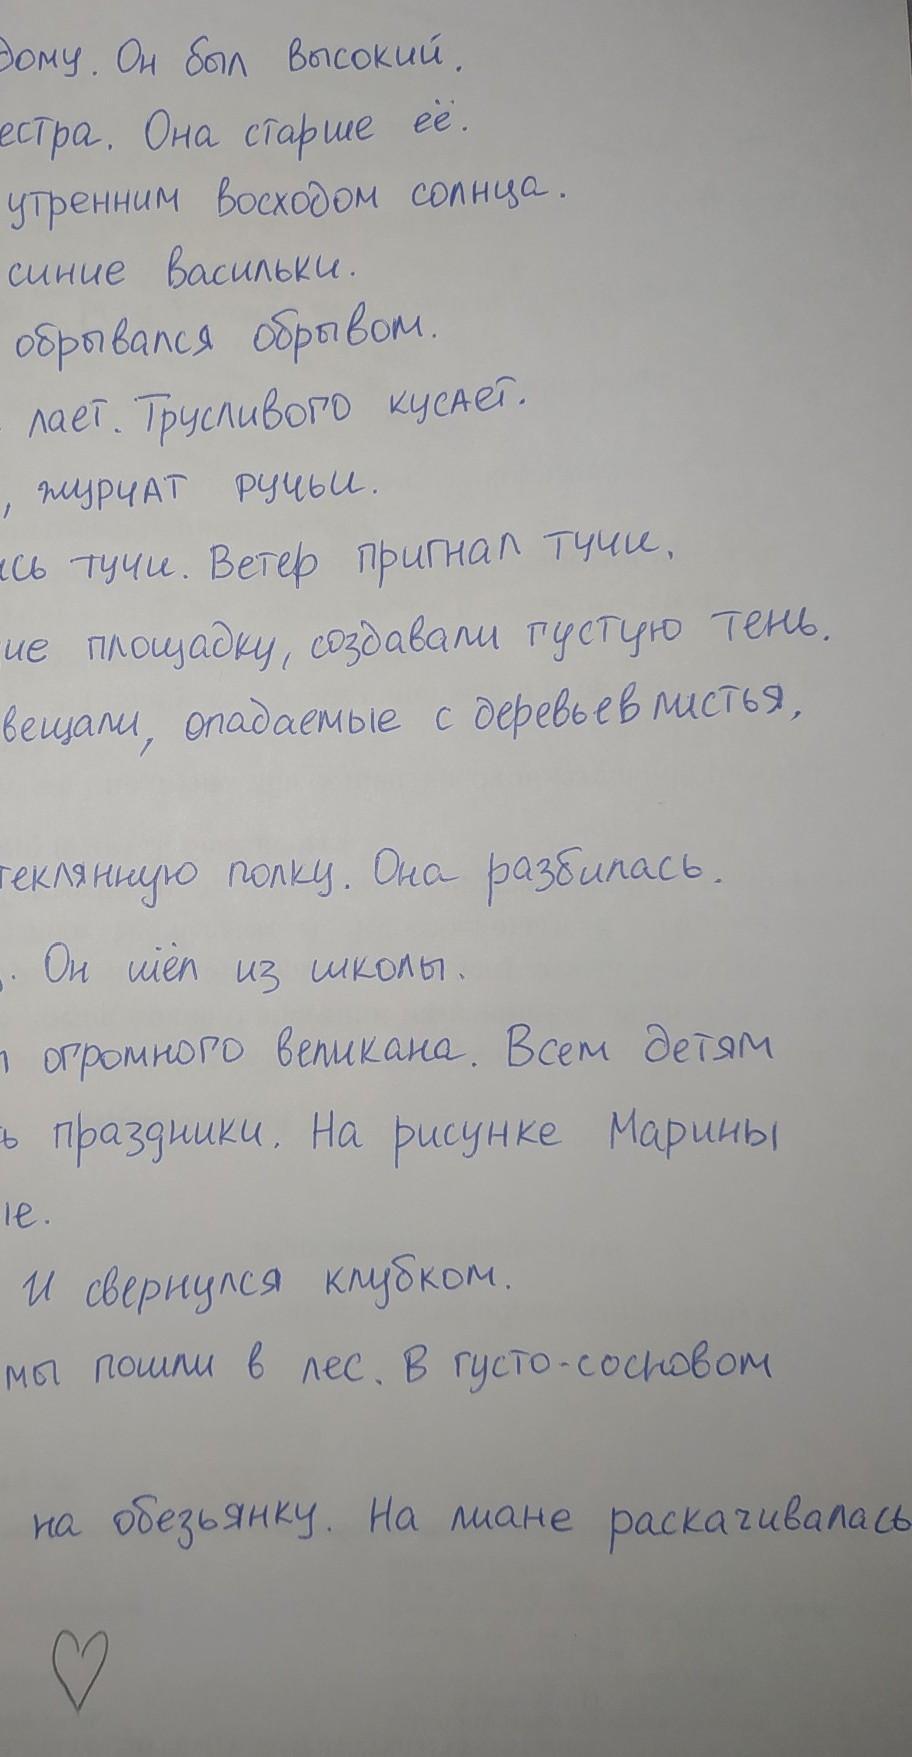 дому. Он был высокий.
естра. Она старше её.
утренним восходом солнца.
синие васильки.
обрывался обрывом.
лает. Трусливого кусает.
, журчат ручьи.
сь тучи. Ветер пригнал тучи.
ие площадку, создавали пустую тень.
вещали, опадаемые с деревьев листья,
теклянную полку. Она разбилась.
. Он шёл из школы.
огромного великана. Всем детям
ь праздники. На рисунке Марины
ые.
И свернулся клубком.
мы пошли в лес. В густо-сосновом
на обезьянку. На лиане раскачивалась